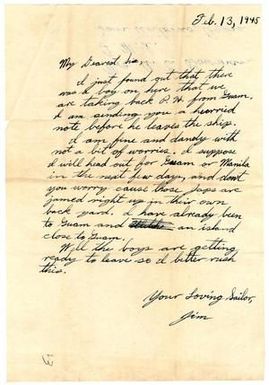 Feb. 13, 1945
My Dearest
I just found out that there
was a boy on here that we
are taking back P. H. from Guam.
I am sending you a hurried
note before he leaves the ship.
I am fine and dandy with
not a bit of worries. I suppose
I will head out for Guam or Manila
in the next few days, and dont
you worry cause those Japs are
jamed right up in their own
back yard. I have already been
to Guam and an island
close to Guam.
Well the boys are getting
ready to leave so I better rush
this.
Your Loving Sailor,
Jim